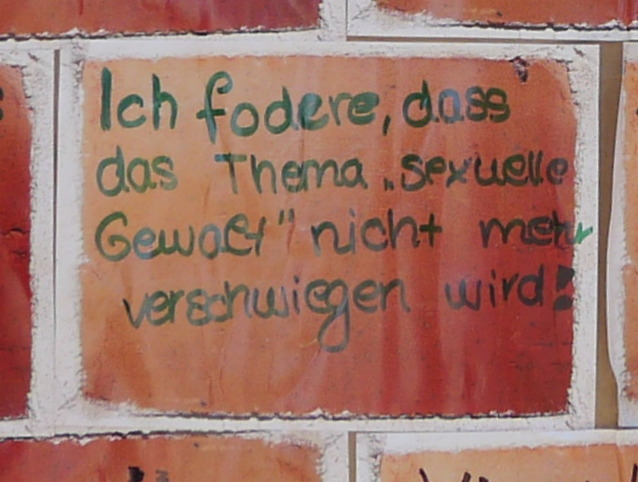 Ich fodere, dass
das Thema „sexuelle
Gewalt" nicht mehr
verschwiegen wird!